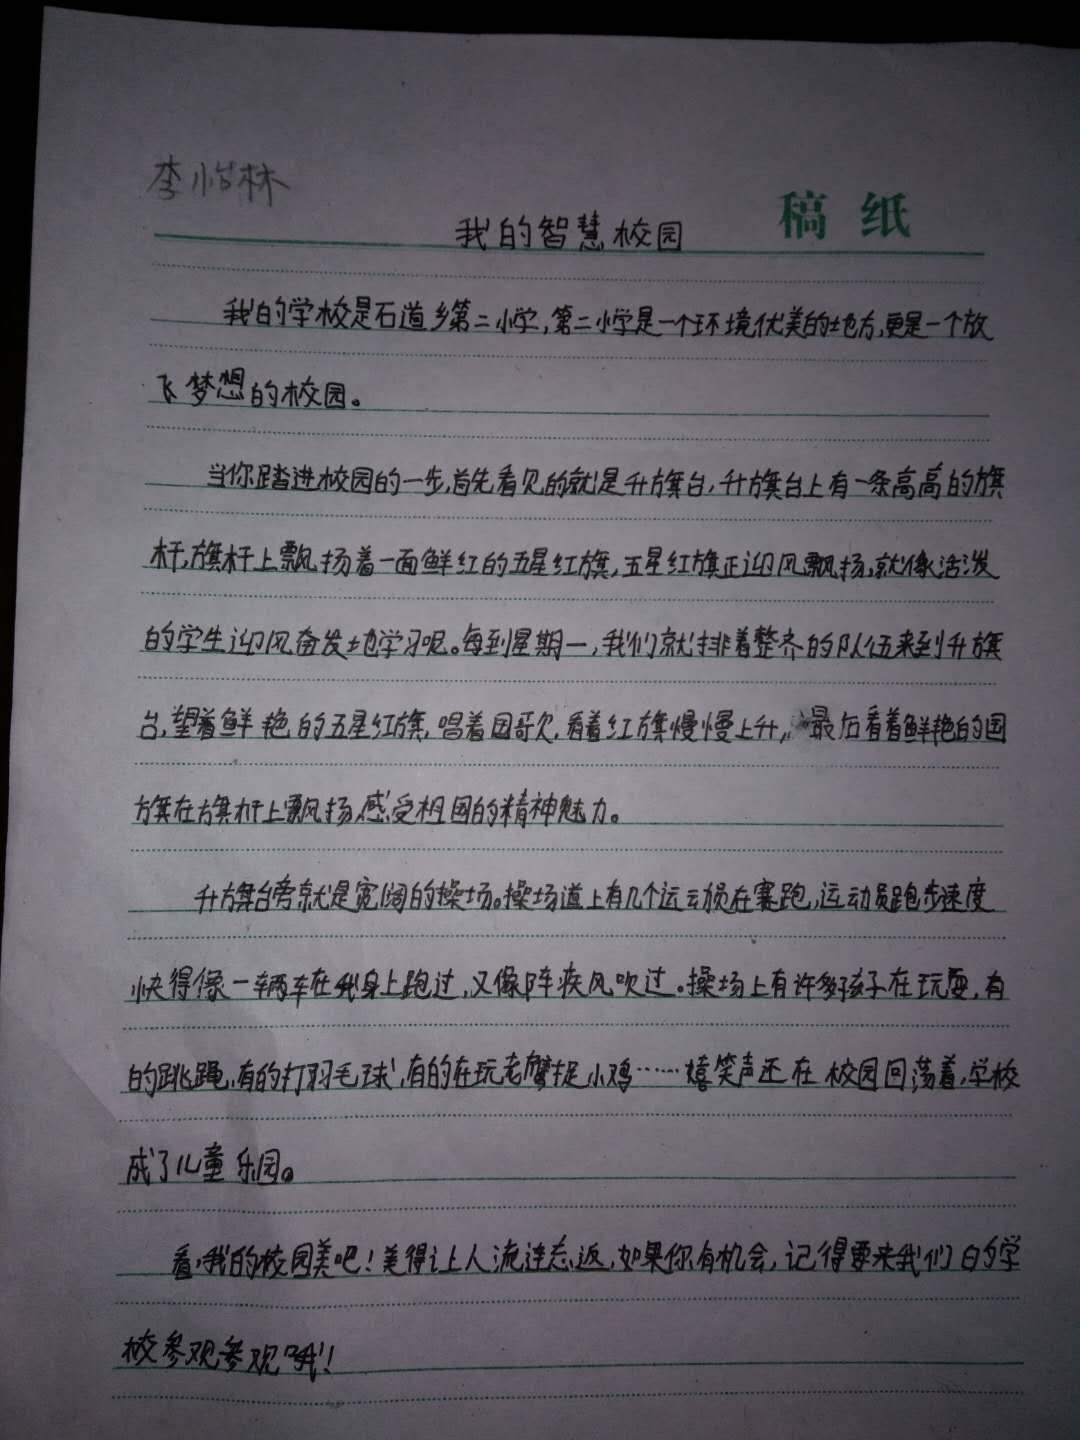 李怡林
稿纸
我的智慧校园
我的学校是石道乡第二小学,第二小学是一个环境优美的地方,更是一个放
飞梦想的校园。
当你踏进校园的一步,首先看见的就是升旗台,升旗台上有一条高高的旗
杆,旗杆上飘扬着一面鲜红的五星红旗,五星红旗正迎风飘扬,就像活泼
的学生迎风奋发地学习呢。每到星期一,我们就排着整齐的队伍来到升旗
台,望着鲜艳的五星红旗,唱着国歌,看着红旗慢慢上升,最后看着鲜艳的国
旗在旗杆上飘扬,感受祖国的精神魅力。
升旗台旁就是宽阔的操场。操场道上有几个运动员在赛跑,运动员跑步速度
快得像一辆车在我身上跑过,又像阵疾风吹过。操场上有许多孩子在玩耍,有
的跳绳,有的打羽毛球,有的在玩老鹰捉小鸡……嬉笑声还在校园回荡着,学校
成了儿童乐园。
看,我的校园美吧!美得让人流连忘返,如果你有机会,记得要来我们的学
校参观参观哦!